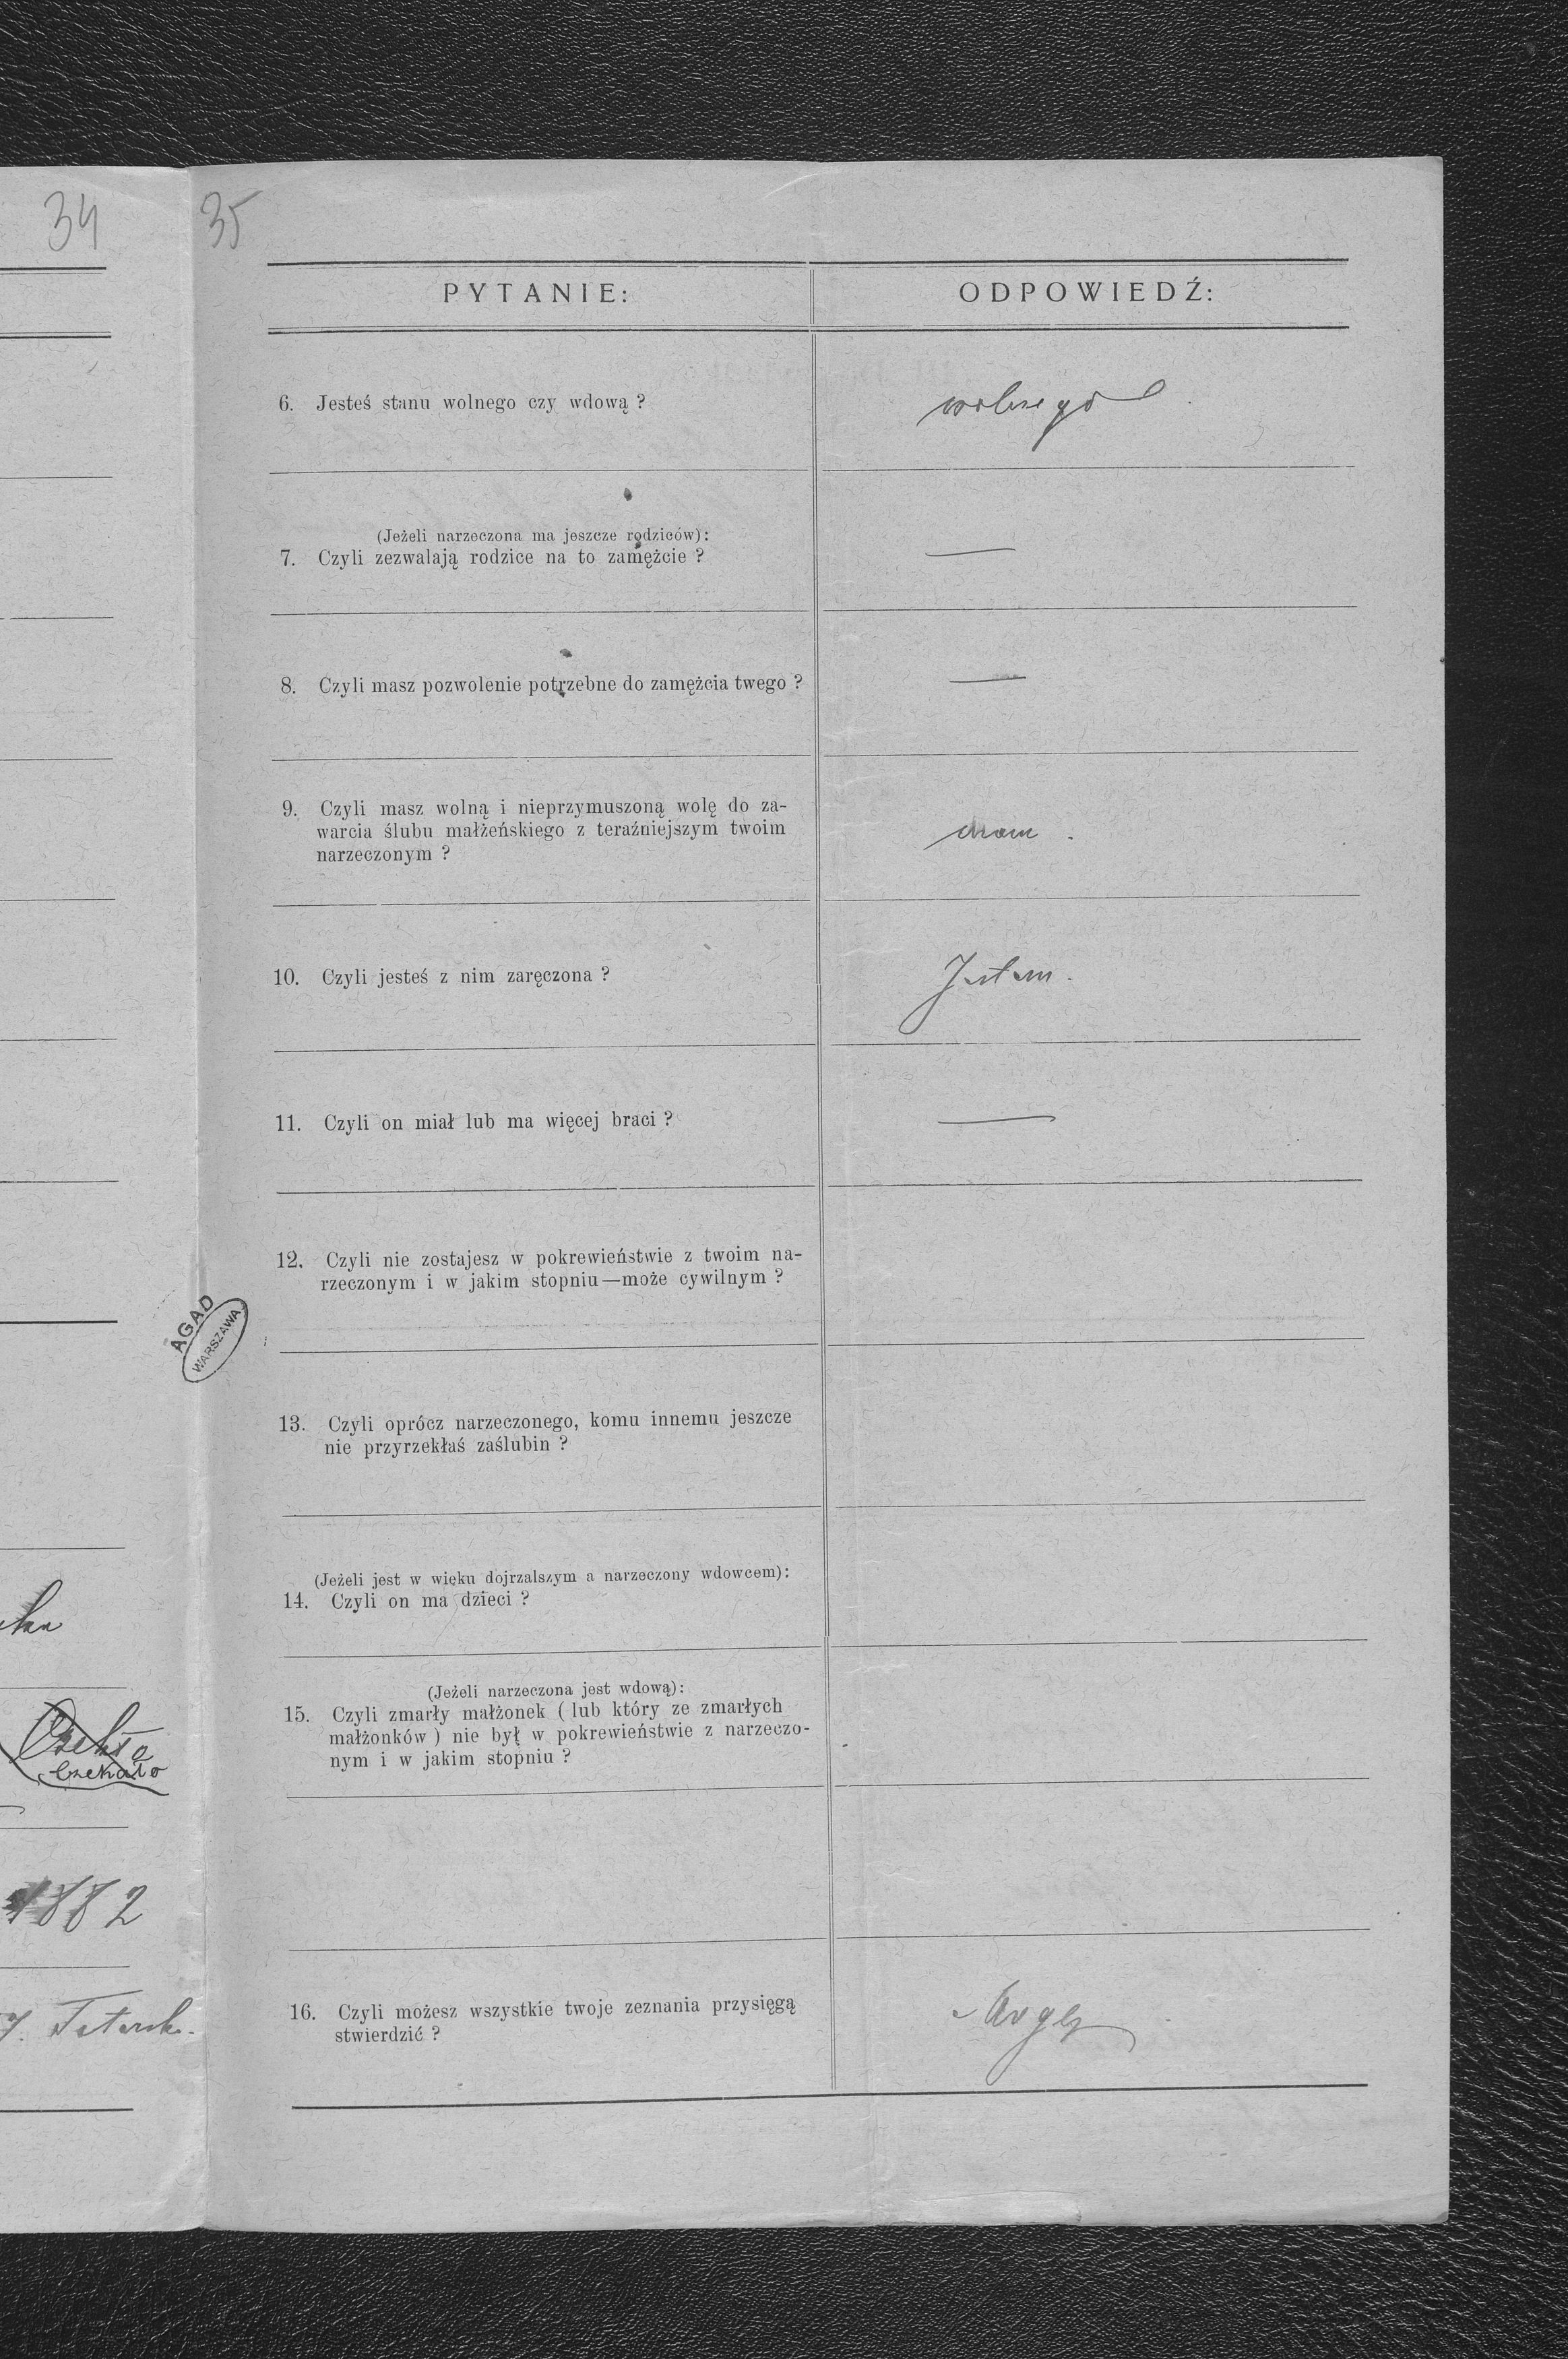 34
ska
Czekało
1882
Tatarsk.
35
PYTANIE: ODPOWIEDŹ:
6. Jesteś stanu wolnego czy wdową ? wolnego
(Jeżeli narzeczona ma jeszcze rodziców):
7. Czyli zezwalają rodzice na to zamężcie ? —
8. Czyli masz pozwolenie potrzebne do zamężcia twego ? —
9. Czyli masz wolną i nieprzymuszoną wolę do za-
warcia ślubu małżeńskiego z teraźniejszym twoim mam .
narzeczonym ?
10. Czyli jesteś z nim zaręczona ? Jestem.
11. Czyli on miał lub ma więcej braci ? —
12. Czyli nie zostajesz w pokrewieństwie z twoim na-
rzeczonym i w jakim stopniu—może cywilnym ?
AGAD
WARSZAWA
13. Czyli oprócz narzeczonego, komu innemu jeszcze
nie przyrzekłaś zaślubin ?
(Jeżeli jest w więku dojrzalszym a narzeczony wdowcem):
14. Czyli on ma dzieci ?
(Jeżeli narzeczona jest wdową):
15. Czyli zmarły małżonek ( lub który ze zmarłych
małżonków ) nie był w pokrewieństwie z narzeczo-
nym i w jakim stopniu ?
16. Czyli możesz wszystkie twoje zeznania przysięgą Mogę
stwierdzić ?